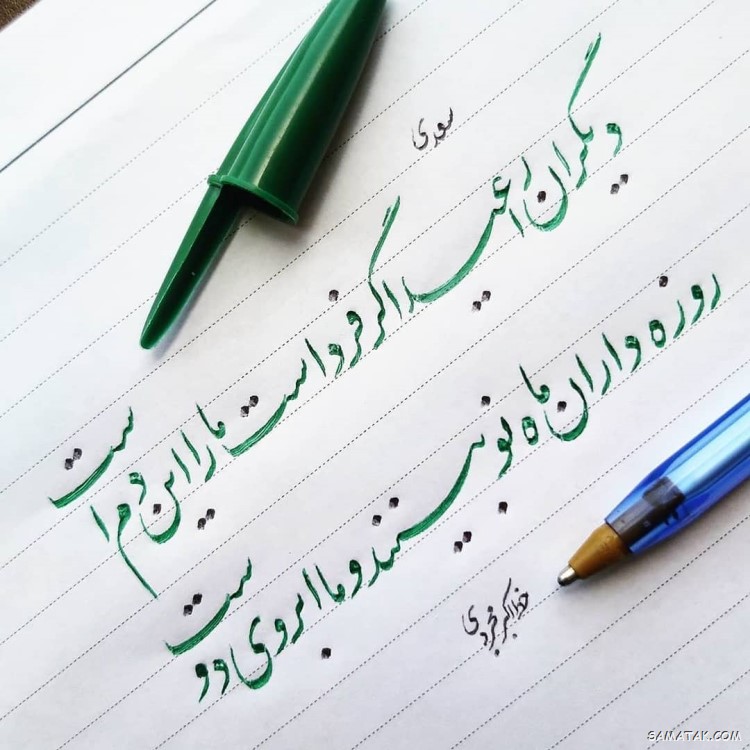 سعدی
دیگران را عید اگر فرداست ما را این دم است
روزه داران ماه نو بینند و ما ابروی دوست
SAMATAK.COM